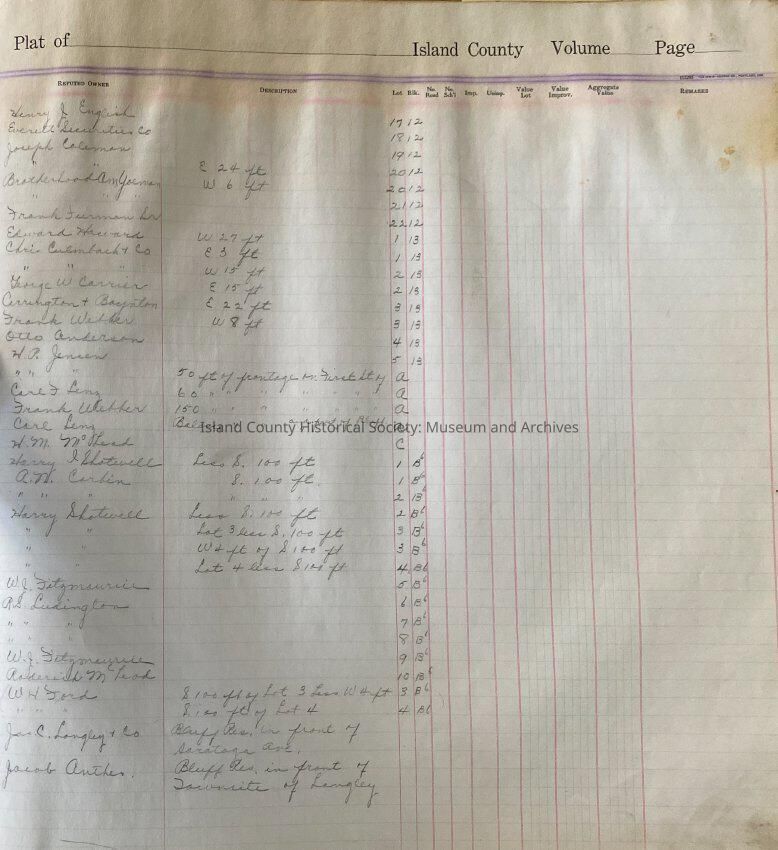 Plat of Island County Volume Page
Reputed Owner Description Lot Blk. No. Road No. Sch'l Imp. Unimp. Value Lot Value Improv. Aggregate Value Remarks
Henry J English 17 12
Everett Securities Co 18 12
Joseph Coleman 19 12
" " E 24 ft 20 12
Brotherhood Am Yoeman W 6 ft 20 12
" " " 21 12
Frank Furman 22 12
Edward Howard W 27 ft 1 13
Chris Culmback & Co E 3 ft 1 13
" " W 15 ft 2 13
George W Carrier E 15 ft 2 13
Cerrington & Boynton E 22 ft 3 13
Frank Webber W 8 ft 3 13
Otto Anderson 4 13
H.P. Jensen 5 13
" " " 50 ft of frontage on First St of A
Carl F Lenz 60 " " " " " " A
Frank Webber 150 " " " " " " A
Carl Lenz A
Island County Historical Society: Museum and Archives
H.M. McLeod C
Harry J Shotwell Less S. 100 ft 1 B6
A.M. Corbin S. 100 ft. 1 B6
" " " " " " 2 B6
Harry Shotwell Less S. 100 ft 2 B6
" " Lot 3 less S. 100 ft 3 B6
" " W 4 ft of S 100 ft 3 B6
" " Lot 4 less S 100 ft 4 B6
W.J. Fitzmaurice 5 B6
R.S. Ludington 6 B6
" " " 7 B6
" " " 8 B6
W.J. Fitzmaurice 9 B6
Roderick McLeod 10 B6
W H Ford S 100 ft of Lot 3 Less W 4 ft 3 B6
" " " S. 100 ft of Lot 4 4 B6
Jas C. Langley & Co Bluff Res. in front of
Saratoga Ave.
Jacob Anthes. Bluff Res. in front of
Townsite of Langley